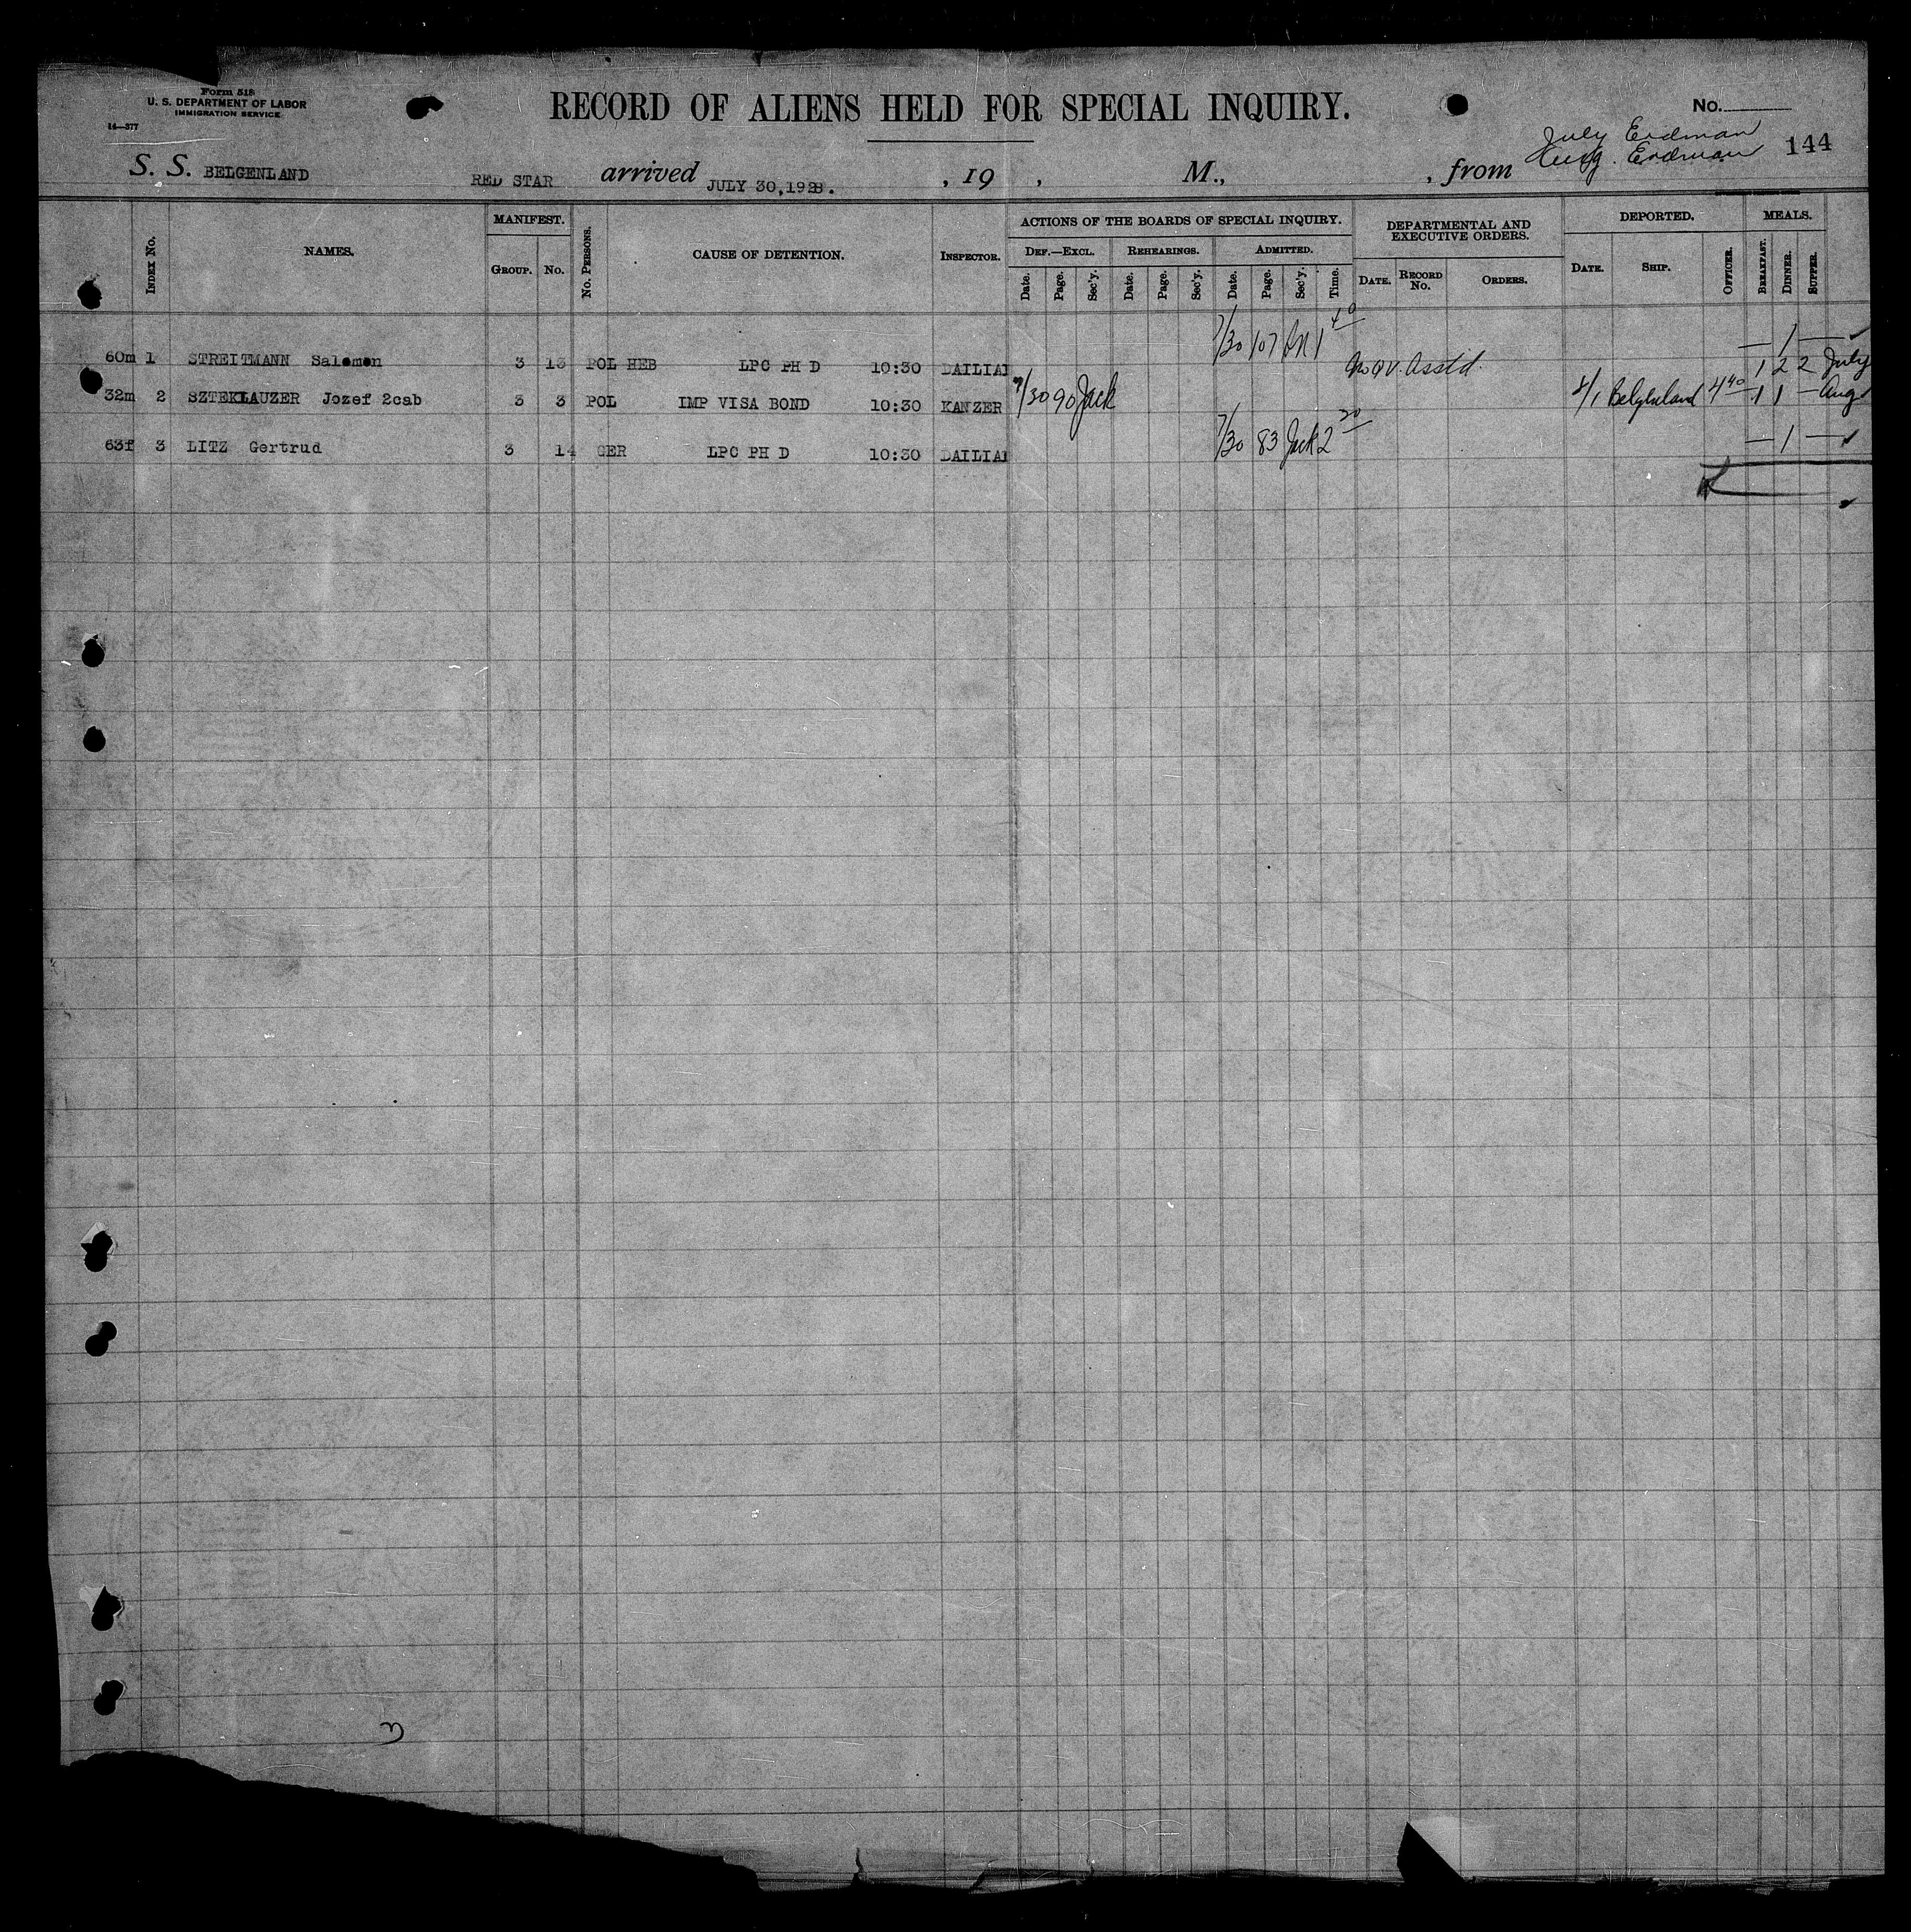 Form 518
U. S. DEPARTMENT OF LABOR
IMMIGRATION SERVICE
14—377
RECORD OF ALIENS HELD FOR SPECIAL INQUIRY.
No.
July Erdman
Aug. Erdman 144
S. S. BELGENLAND RED STAR arrived JULY 30,1928. , 19 , M., , from
INDEX No. NAMES. MANIFEST. GROUP. No. No. PERSONS. CAUSE OF DETENTION. INSPECTOR.
ACTIONS OF THE BOARDS OF SPECIAL INQUIRY.
DEF.—EXCL. REHEARINGS. ADMITTED.
Date. Page. Sec'y. Date. Page. Sec'y. Date. Page. Sec'y. Time.
DEPARTMENTAL AND
EXECUTIVE ORDERS.
DATE. RECORD No. ORDERS.
DEPORTED.
DATE. SHIP. OFFICER.
MEALS.
BREAKFAST. DINNER. SUPPER.
60m 1 STREITMANN Salomon 3 13 POL HEB LPC PH D 10:30 DAILIAN 7/30 107 1 40 — 1 — ✓
32m 2 SZTEKLAUZER Jozef 2cab 3 3 POL IMP VISA BOND 10:30 KANZER 7/30 90 Jack 8/1 Belgenland 4 40 1 2 2 July
1 1 — Aug
63f 3 LITZ Gertrud 3 14 GER LPC PH D 10:30 DAILIAN 7/30 83 Jack 2 20 — 1 — ✓